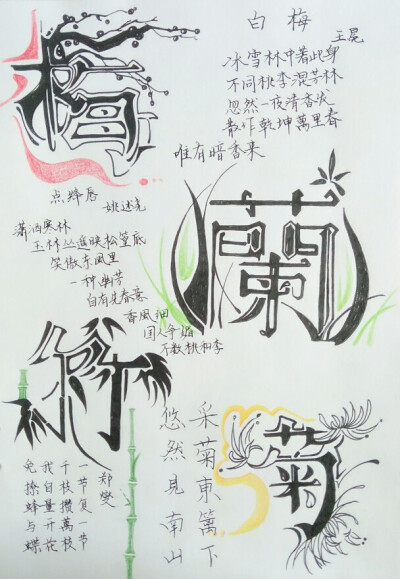 梅
白梅
王冕
冰雪林中著此身
不同桃李混芳林
忽然一夜清香发
散作乾坤萬里春
唯有暗香来
点绛唇
姚述尧
潇洒寒林
玉林丛遥映松篁底
笑傲东風里
一种幽芳
自有先春意
香風细
国人争媚
不数桃和李
蘭
竹
郑燮
一节复一节
千枝攒萬枝
我自开花
免撩蜂与蝶
菊
采菊東篱下
悠然見南山